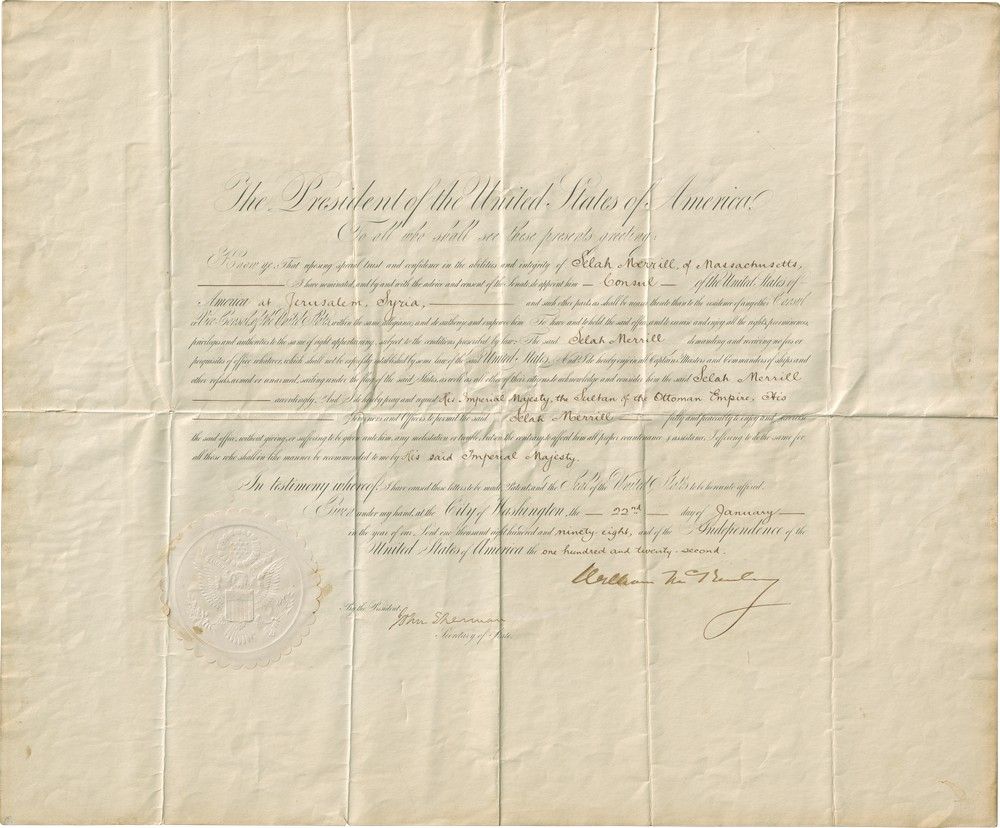 The President of the United States of America,
To all who shall see these presents, greeting:
Know ye: That reposing special trust and confidence in the abilities and integrity of Selah Merrill, of Massachusetts,
I have nominated, and by and with the advice and consent of the Senate, do appoint him Consul of the United States of
America at Jerusalem, Syria, and such other parts as shall be nearer thereto than to the residence of any other Consul
or Vice Consul of the United States within the same allegiance, and do authorize and empower him To have and to hold the said office, and to exercise and enjoy all the rights, preeminences,
privileges and authorities to the same of right appertaining, subject to the conditions prescribed by law: The said Selah Merrill demanding and receiving no fees or
perquisites of office whatever, which shall not be expressly established by some law of the said United States. And I do hereby enjoin all Captains, Masters and Commanders of ships and
other vessels, armed or unarmed, sailing under the flag of the said States, as well as all other of their citizens to acknowledge and consider him the said Selah Merrill
accordingly. And I do hereby pray and request His Imperial Majesty, the Sultan of the Ottoman Empire, His
Governors and Officers to permit the said Selah Merrill fully and peaceably to enjoy and exercise
the said office, without giving, or suffering to be given unto him, any molestation or trouble, but on the contrary to afford him all proper countenance & assistance; I offering to do the same for
all those who shall in like manner be recommended to me by His said Imperial Majesty.
In testimony whereof, I have caused these letters to be made Patent and the Seal of the United States to be hereunto affixed.
Given under my hand, at the City of Washington, the 22nd day of January
in the year of our Lord one thousand eight hundred and ninety-eight, and of the Independence of the
United States of America the one hundred and twenty-second.
William McKinley
By the President:
John Sherman
Secretary of State.